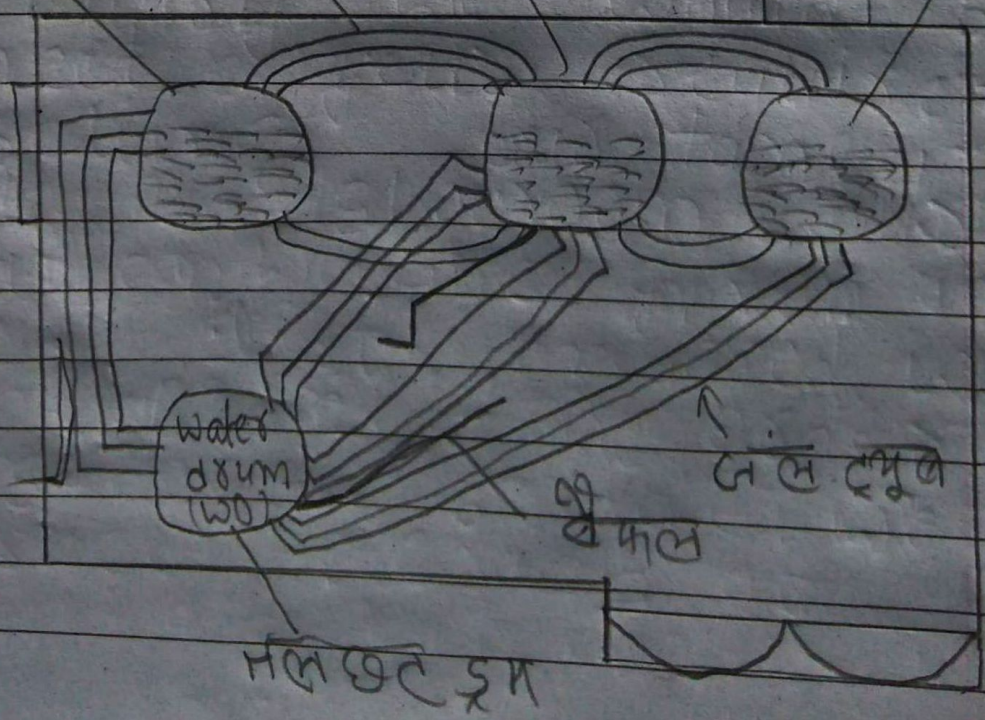 water
drum
(WD)
जल ट्यूब
बैफल
तलछट ड्रम